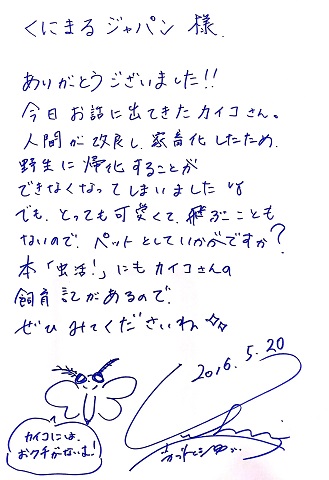 くにまるジャパン 様.
ありがとうございました!!
今日お話に出てきたカイコさん。
人間が改良し、家畜化したため、
野生に帰化することが
できなくなってしまいました
でも、とっても可愛くて、飛ぶことも
ないので、ペットとしていかがですか?
本「虫活!」にもカイコさんの
飼育記があるので、
ぜひみてくださいね
2016.5.20
カイコには、
おクチがないよ!